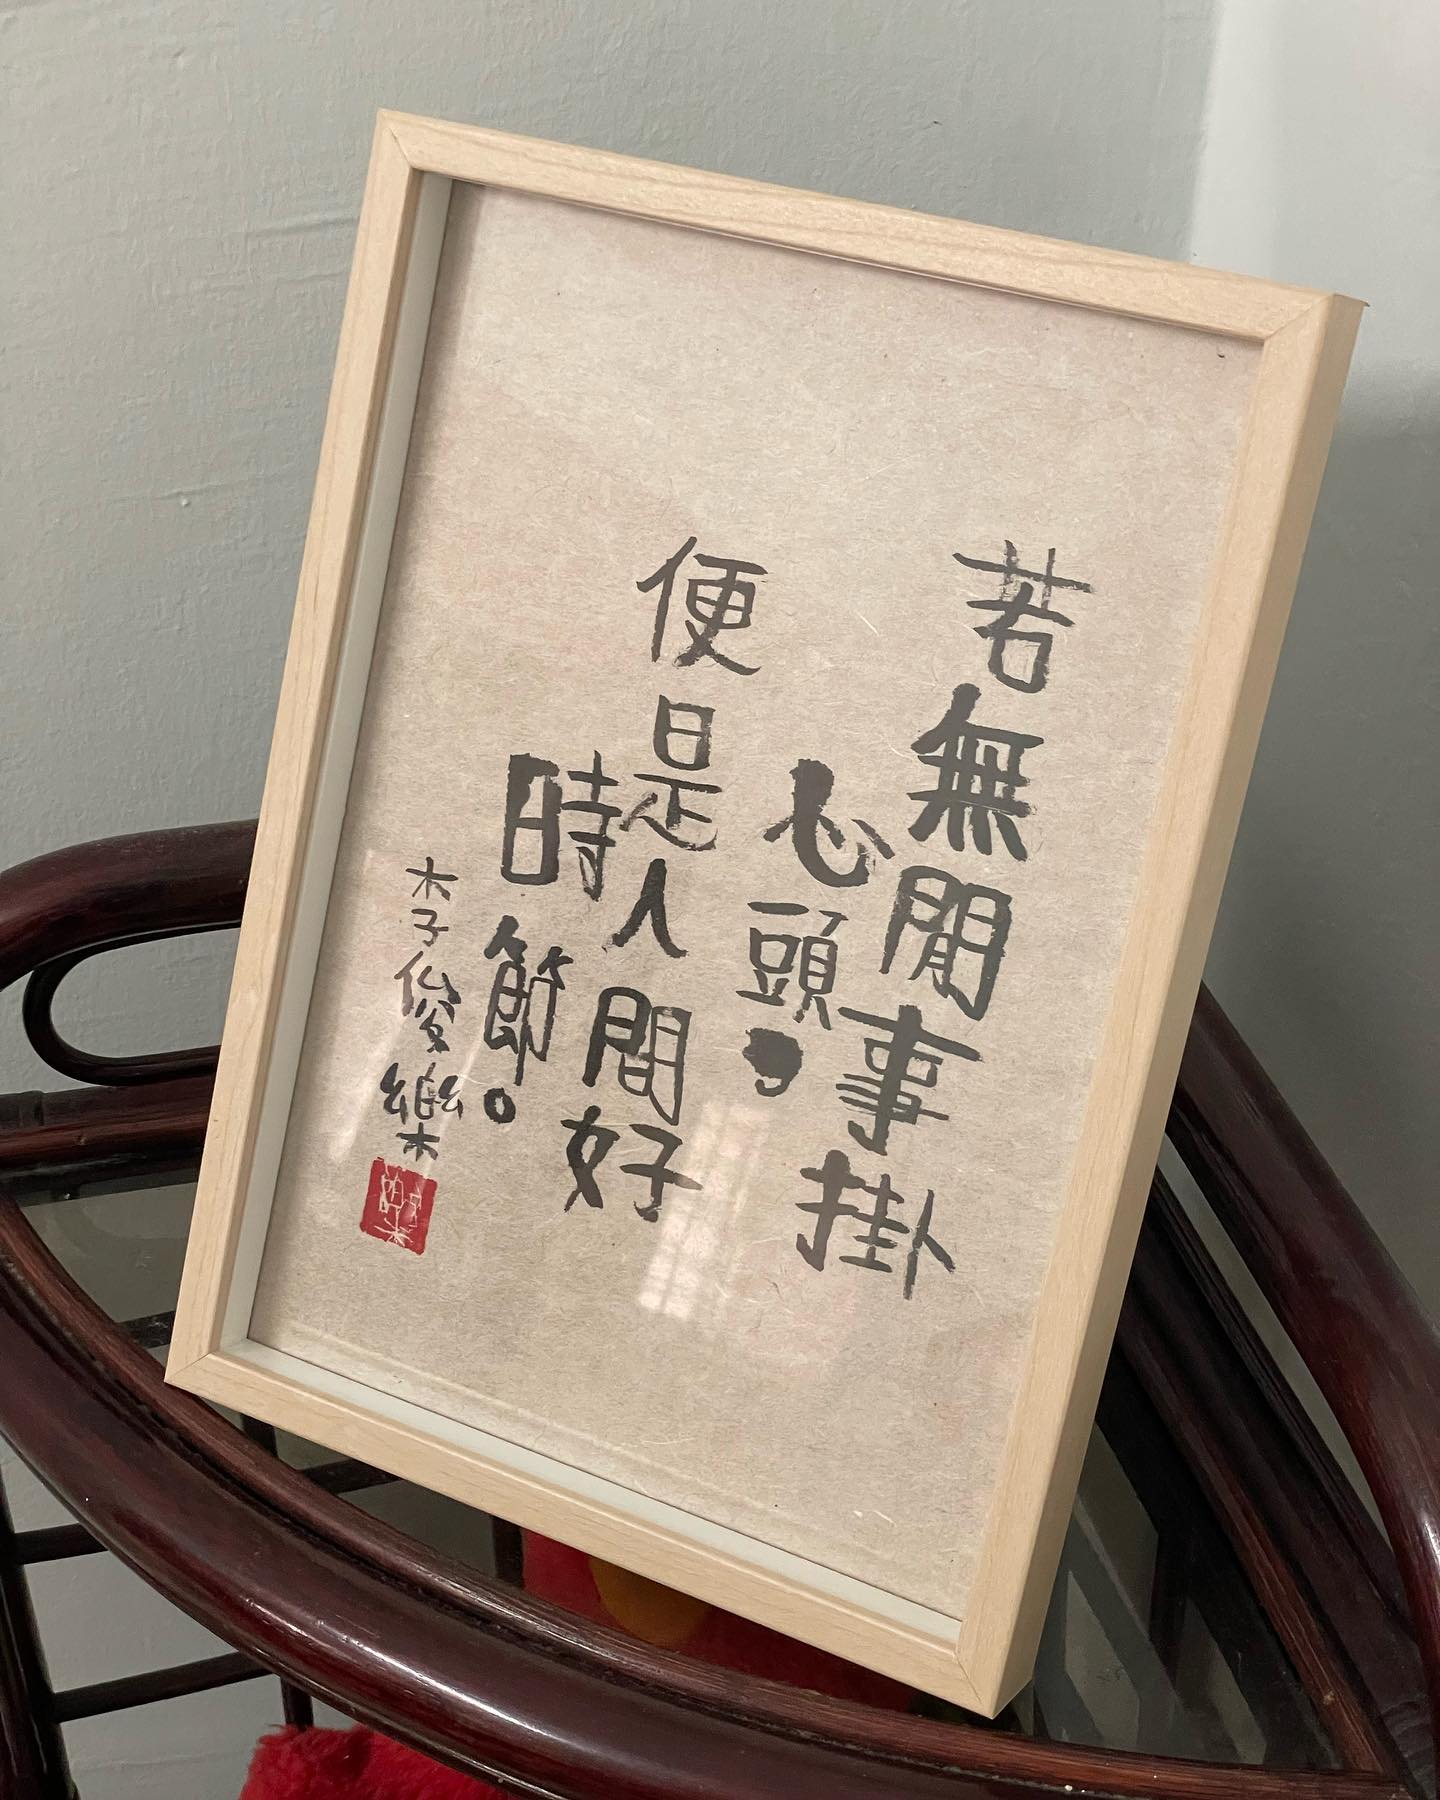 若無閒事掛
心頭，
便是人間好
時節。
李俊樂